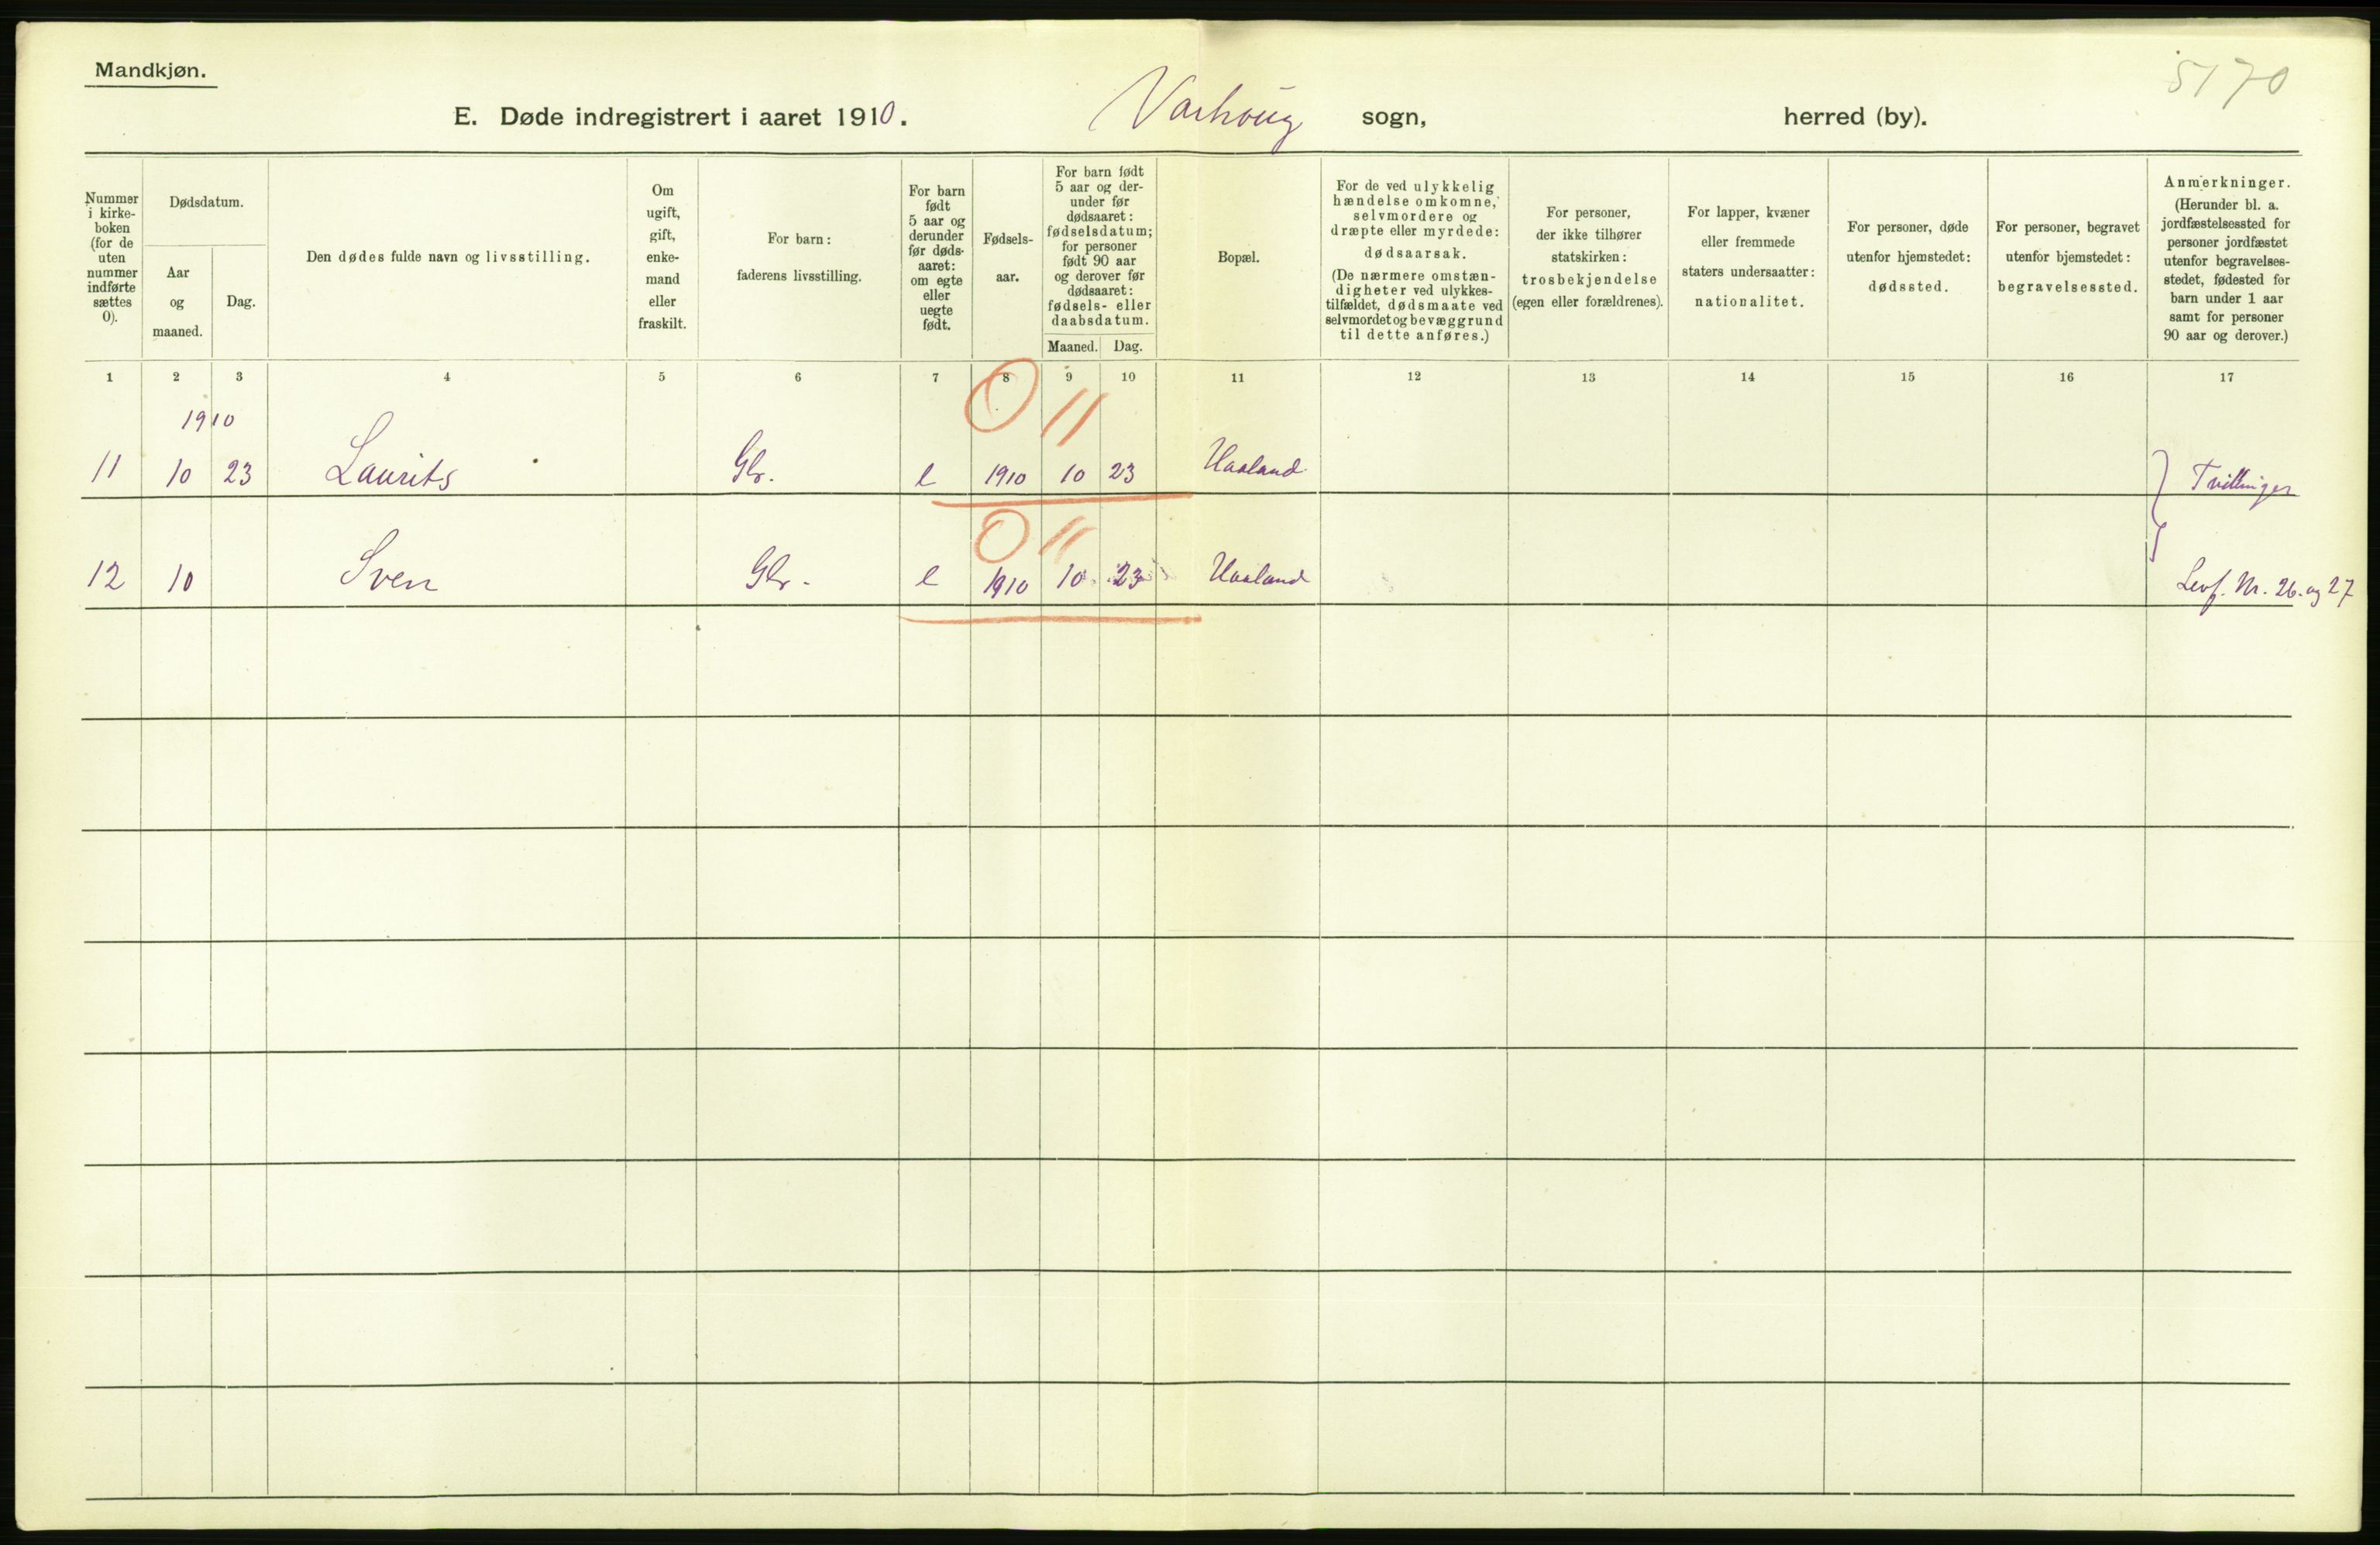 Mandkjøn.
5170
E. Døde indregistrert i aaret 1910. Varhoug sogn, herred (by).
Nummer
i kirke-
boken
(for de
uten
nummer
indførte
sættes
0).
Dødsdatum.
Aar
og
maaned.
Dag.
Den dødes fulde navn og livsstilling.
Om
ugift,
gift,
enke-
mand
eller
fraskilt.
For barn:
faderens livsstilling.
For barn
født
5 aar og
derunder
før døds-
aaret:
om egte
eller
uegte
født.
Fødsels-
aar.
For barn født
5 aar og der-
under før
dødsaaret:
fødselsdatum;
for personer
født 90 aar
og derover før
dødsaaret:
fødsels- eller
daabsdatum.
Maaned.
Dag.
Bopæl.
For de ved ulykkelig
hændelse omkomne,
selvmordere og
dræpte eller myrdede:
dødsaarsak.
(De nærmere omstæn-
digheter ved ulykkes-
tilfældet, dødsmaate ved
selvmordet og bevæggrund
til dette anføres.)
For personer,
der ikke tilhører
statskirken:
trosbekjendelse
(egen eller forældrenes).
For lapper, kvæner
eller fremmede
staters undersaatter:
nationalitet.
For personer, døde
utenfor hjemstedet:
dødssted.
For personer, begravet
utenfor hjemstedet:
begravelsessted.
Anmerkninger.
(Herunder bl. a.
jordfæstelsessted for
personer jordfæstet
utenfor begravelses-
stedet, fødested for
barn under 1 aar
samt for personer
90 aar og derover.)
1 2 3 4 5 6 7 8 9 10 11 12 13 14 15 16 17
1910
0 11
11 10 23 Laurits Gbr. e 1910 10 23 Haaland Tvillinger
0 11
12 10 Sven Gbr. e 1910 10 23 Haaland Levf. Nr. 26. og 27